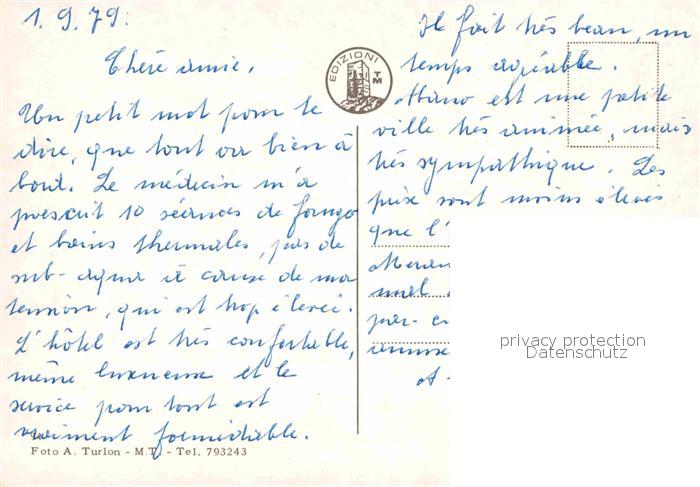 1.9.79.
Chère amie,
Un petit mot pour te
dire, que tout va bien à
bout. Le médecin m'a
prescrit 10 séances de fango
et bains thermales, pas de
sub-aqua à cause de ma
tension, qui est trop élevée.
L'hôtel est très confortable,
même luxueuse et le
service pour tout est
vraiment formidable.
Foto A. Turlon - M.T. - Tel. 793243
EDIZIONI
TM
Il fait très beau, un
temps agréable.
Abano est une petite
ville très animée, mais
très sympathique. Les
prix sont moins élevés
que l'
Meran
mal
per-
privacy protection
Datenschutz